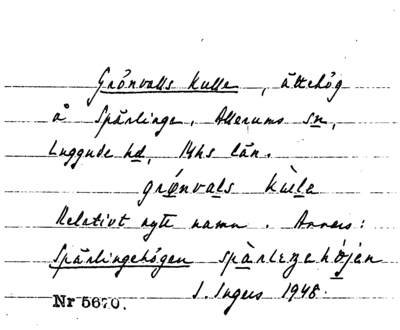 Grönvalls kulle, ättehög
å Spärlinge, Allerums sn,
Luggude hd, Mhs län.
grǿnvals kùla
Relativt nytt namn. Annars:
Spärlingehögen spàrlezehǿjen
I. Ingers 1948.
Nr 5670.